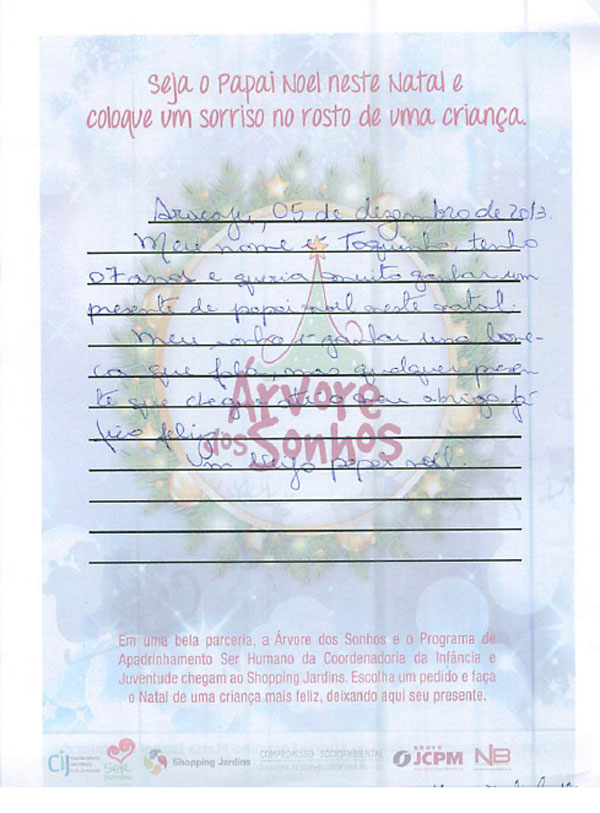 Seja o Papai Noel neste Natal e
coloque um sorriso no rosto de uma criança.
Aracaju, 05 de dezembro de 2013.
Meu nome é Toquinho, tenho
07 anos e queria muito ganhar um
presente de papai noel neste natal.
Meu sonho é ganhar uma bone-
ca que fala, mas qualquer presen-
te que chegue até o meu abrigo já
fico feliz.
Um beijo papai noel.
Árvore
dos Sonhos
Em uma bela parceria, a Árvore dos Sonhos e o Programa de
Apadrinhamento Ser Humano da Coordenadoria da Infância e
Juventude chegam ao Shopping Jardins. Escolha um pedido e faça
o Natal de uma criança mais feliz, deixando aqui seu presente.
CIJ Coordenadoria da Infância e da Juventude
Ser
Shopping Jardins
COMPROMISSO SOCIOAMBIENTAL
GRUPO
JCPM
NB